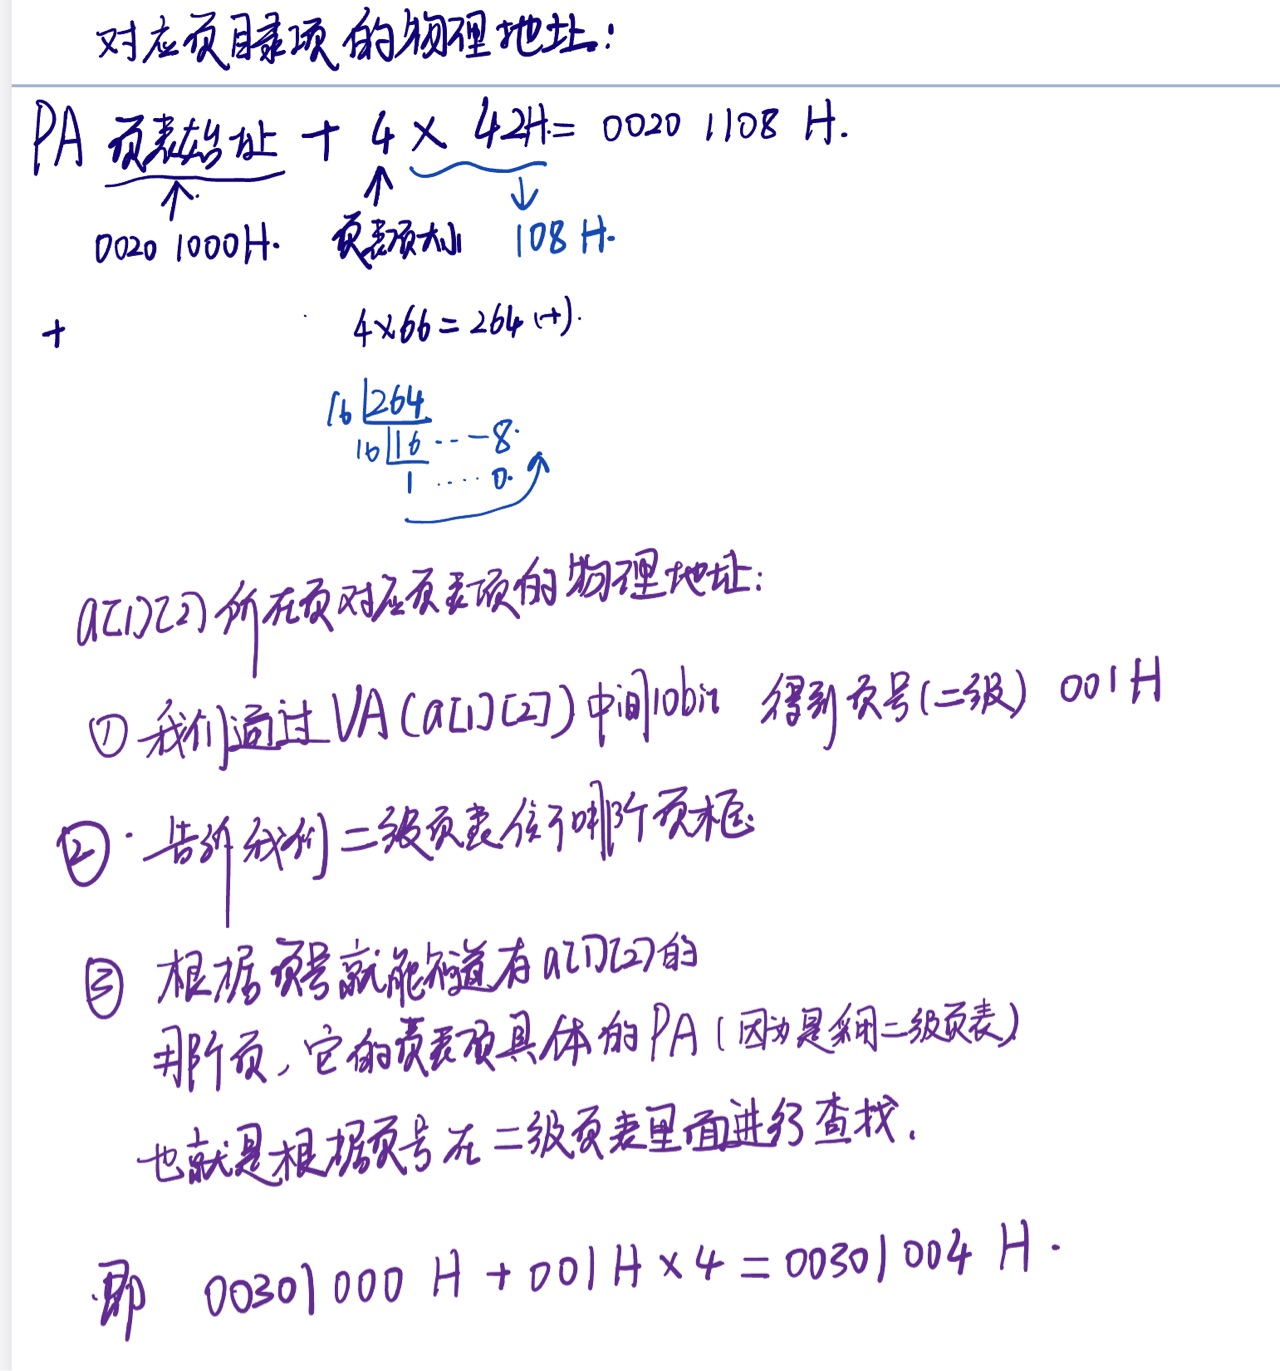 对应页目录项的物理地址:
PA 页表始址 + 4 × 42H = 0020 1108 H.
0020 1000H. 页表项大小 108 H.
+ 4×66=264(十).
16 264
16 16 ---8.
1 ....0.
a[1][2]所在页对应页表项的物理地址:
① 我们通过VA(a[1][2])中间10bit 得到页号(二级) 001H
②. 告诉我们二级页表位于哪个页框.
③ 根据页号就能知道有a[1][2]的
那个页, 它的页表项具体的PA(因为是采用二级页表)
也就是根据页号在二级页表里面进行查找.
即 00301000 H + 001H × 4 = 00301004 H.